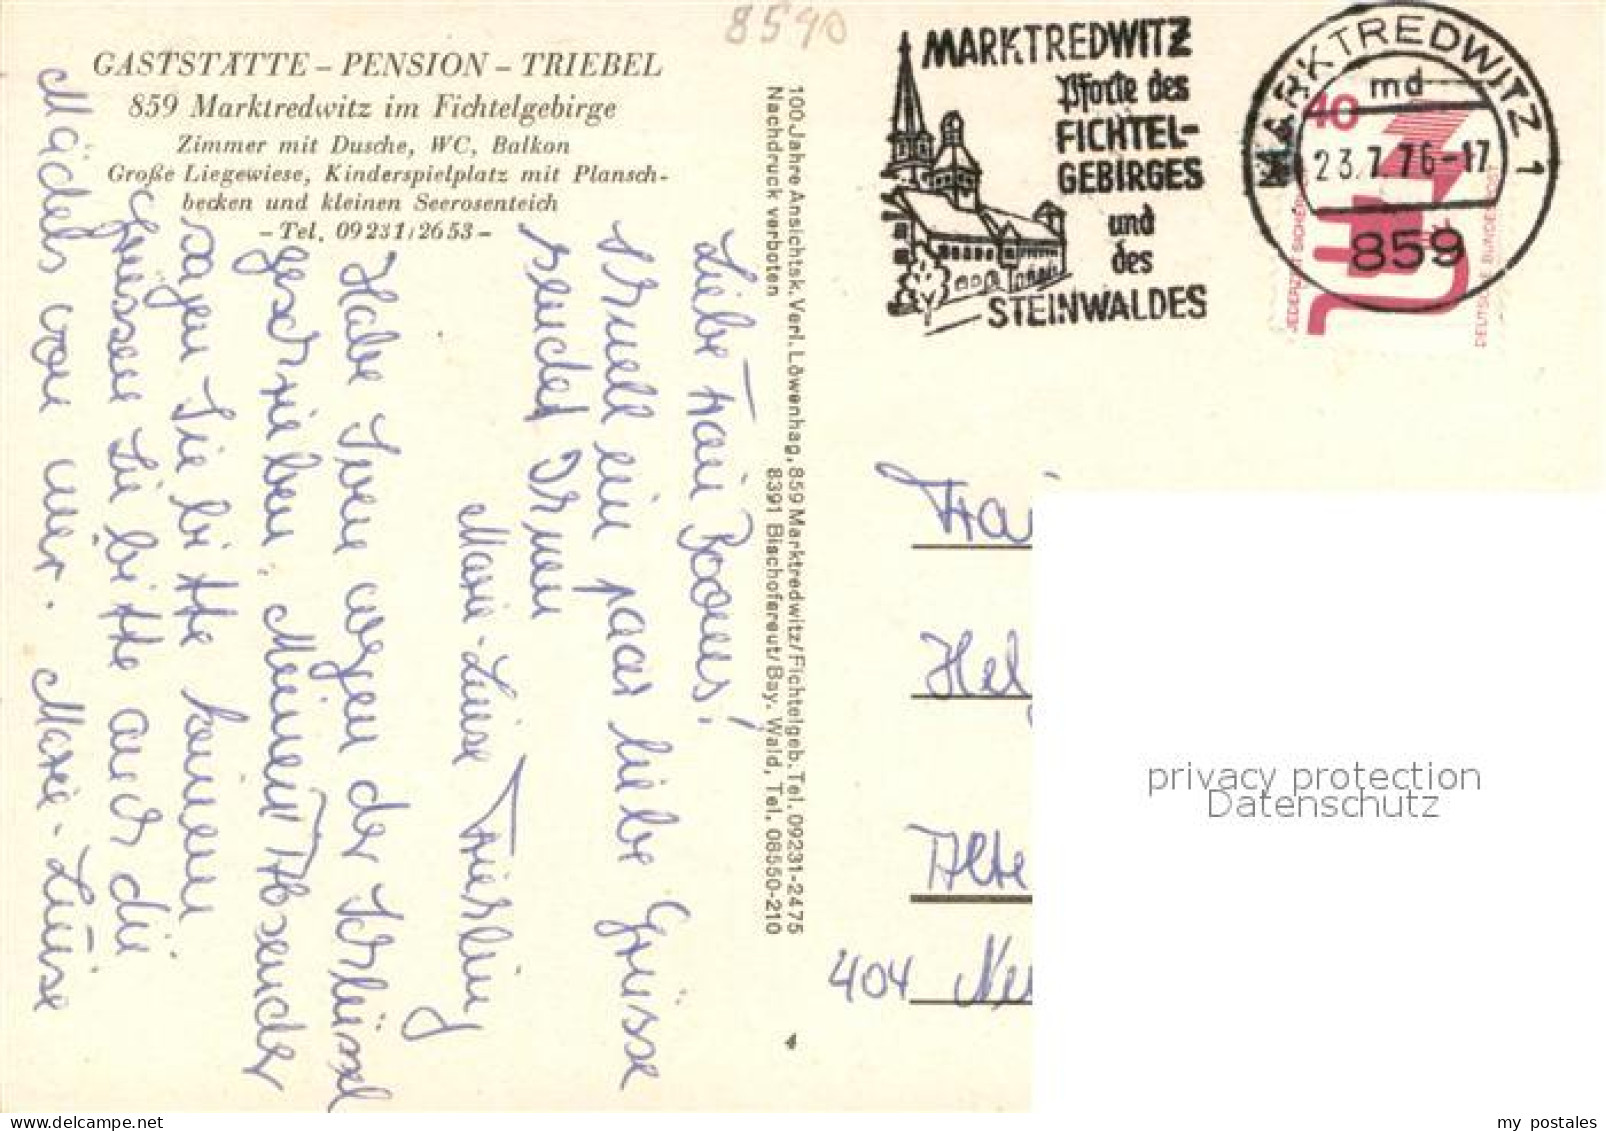 8590
GASTSTÄTTE – PENSION – TRIEBEL
859 Marktredwitz im Fichtelgebirge
Zimmer mit Dusche, WC, Balkon
Große Liegewiese, Kinderspielplatz mit Plansch-
becken und kleinen Seerosenteich
– Tel. 09231/2653 –
Liebe Frau Booms!
Schnell ein paar liebe Grüsse
sendet Ihnen
Marie-Luise
Habe Sven wegen der Schlüssel
geschrieben. Meinen Absender
sagen Sie bitte keinem
Grüssen Sie bitte auch die
Mädels von mir. Marie-Luise
100 Jahre Ansichtsk. Verl. Löwenhag, 859 Marktredwitz/Fichtelgeb. Tel. 09231-2475
Nachdruck verboten 8391 Bischofsreut/Bay. Wald, Tel. 08550-210
4
MARKTREDWITZ
Pforte des
FICHTEL-
GEBIRGES
und
des
STEINWALDES
MARKTREDWITZ 1
md
23.7.76-17
859
40
JEDERZEIT SICHERHEIT
DEUTSCHE BUNDESPOST
Frau
Hel
Alte
404 Neu
privacy protection
Datenschutz
my postales